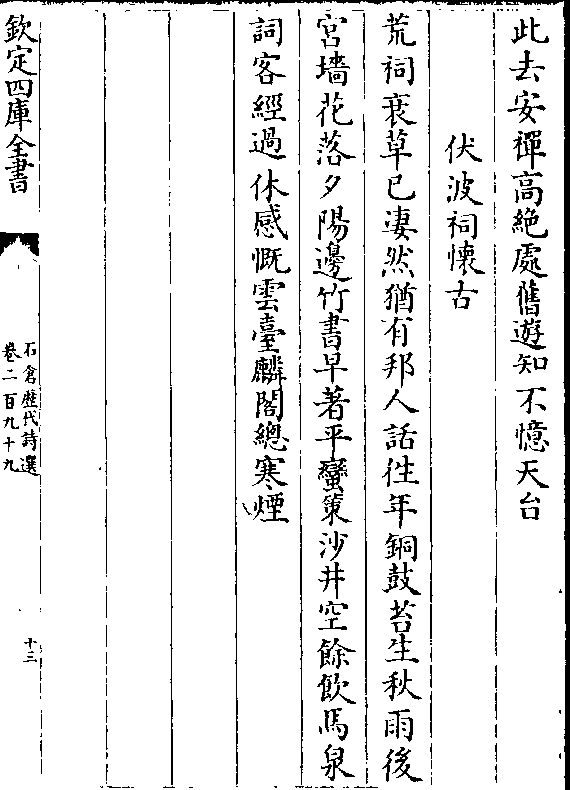 此去安禪高絶處舊遊知不憶天台
伏波祠懷古
荒祠衰草已凄然猶有邦人話徃年銅鼓苔生秋雨後
宫墻花落夕陽邊竹書早著平蠻策沙井空餘飲馬泉
詞客經過休感慨雲臺麟閣總寒煙
欽定四庫全書
石倉歴代詩選
卷二百九十九
十三